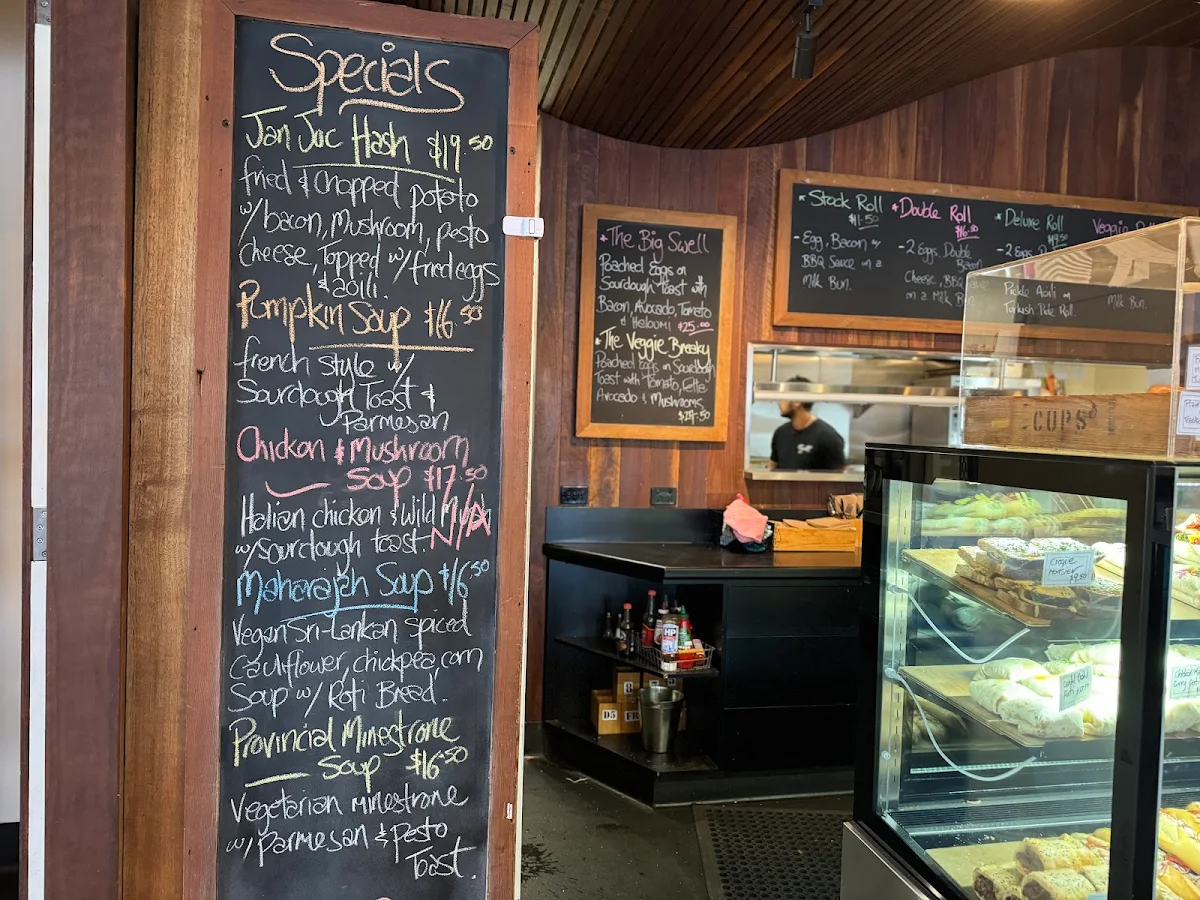 Specials
Jan Juc Hash $19.50
fried & chopped potato
w/bacon, Mushroom, pesto
Cheese, Topped w/ fried eggs
& aolli.
Pumpkin Soup $16.50
french style w/
Sourdough Toast &
Parmesan
Chicken & Mushroom
Soup $17.50
Italian chicken & wild
w/sourdough toast. N/A
Maharajah Soup $16.50
Vegan Sri-Lankan spiced
Cauliflower, chickpea, corn
Soup w/ Roti Bread.
Provincial Minestrone
Soup $16.50
Vegetarian minestrone
w/Parmesan & Pesto
Toast.
* The Big Swell
Poached Eggs on
Sourdough Toast with
Bacon, Avocado, Tomato
& Halloumi $25.00
* The Veggie Breaky
Poached Eggs on Sourdough
Toast with Tomato, Fetta
Avocado & Mushrooms
$24.50
* Stock Roll
$11.50
- Egg, Bacon &
BBQ Sauce on a
Milk Bun.
* Double Roll
$16.50
- 2 Eggs, Double
Bacon
Cheese, BBQ
on a Milk
* Deluxe Roll
$19.50
- 2 Eggs
Pickle Aioli on
Turkish Pide Roll.
Veggie
Milk Bun.
CUPS
HP
D5
FR
Croque
Monsieur
$9.50